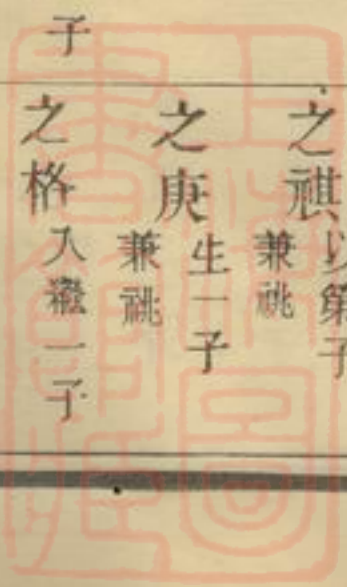 之祺以第子
兼祧
之庚生一子
兼祧
子
之格入繼一子